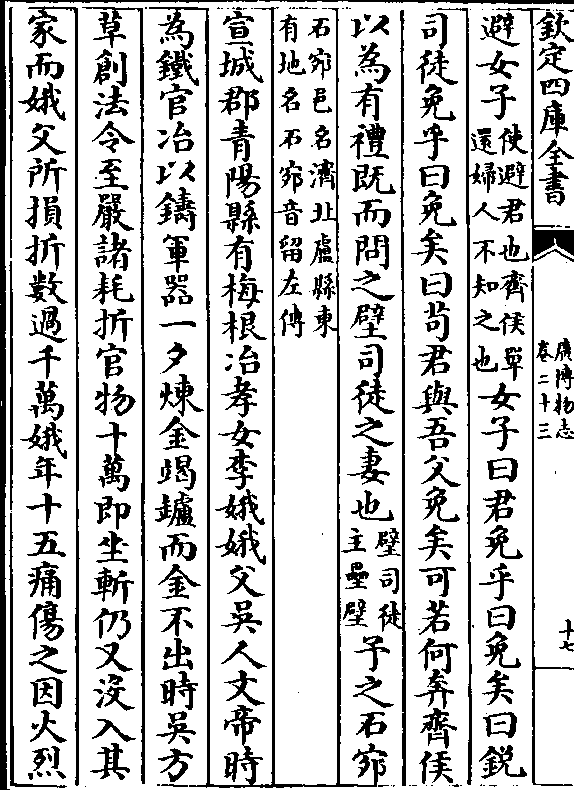 欽定四庫全書
廣博物志
卷二十三
十七
避女子使避君也齊侯單還婦人不知之也女子曰君免乎曰免矣曰鋭
司徒免乎曰免矣曰茍君與吾父免矣可若何奔齊侯
以為有禮既而問之壁司徒之妻也壁司徒主壘壁予之石窌
石窌邑名濟北盧縣東有地名石窌音留左傳
宣城郡青陽縣有梅根冶孝女李娥娥父吳人文帝時
為鐵官冶以鑄軍器一夕煉金竭鑪而金不出時吳方
草創法令至嚴諸耗折官物十萬即坐斬仍又沒入其
家而娥父所損折數過千萬娥年十五痛傷之因火烈